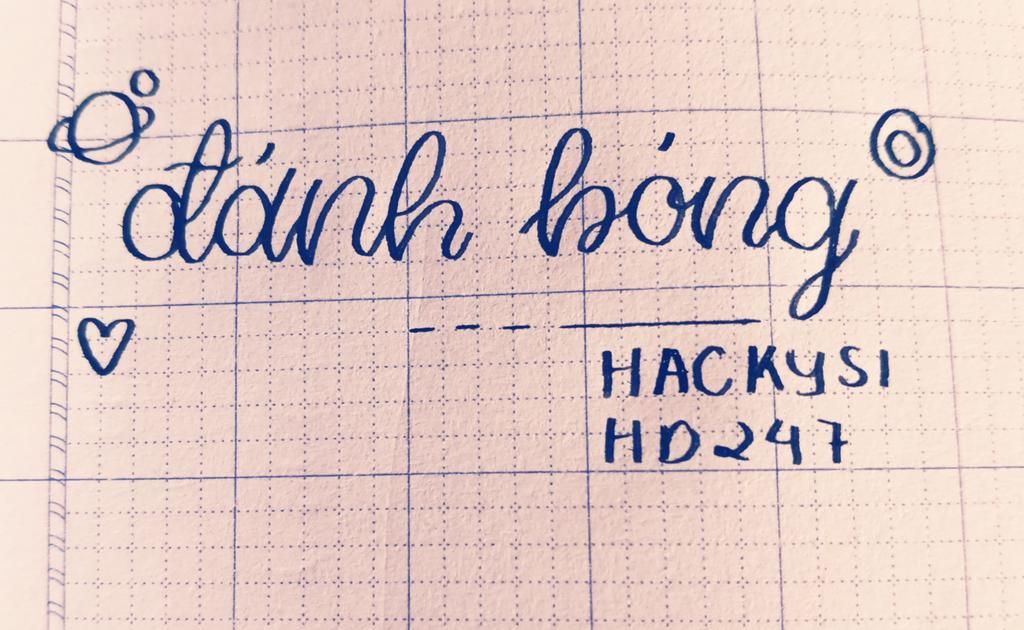 đánh bóng
HACKYSI
HD247